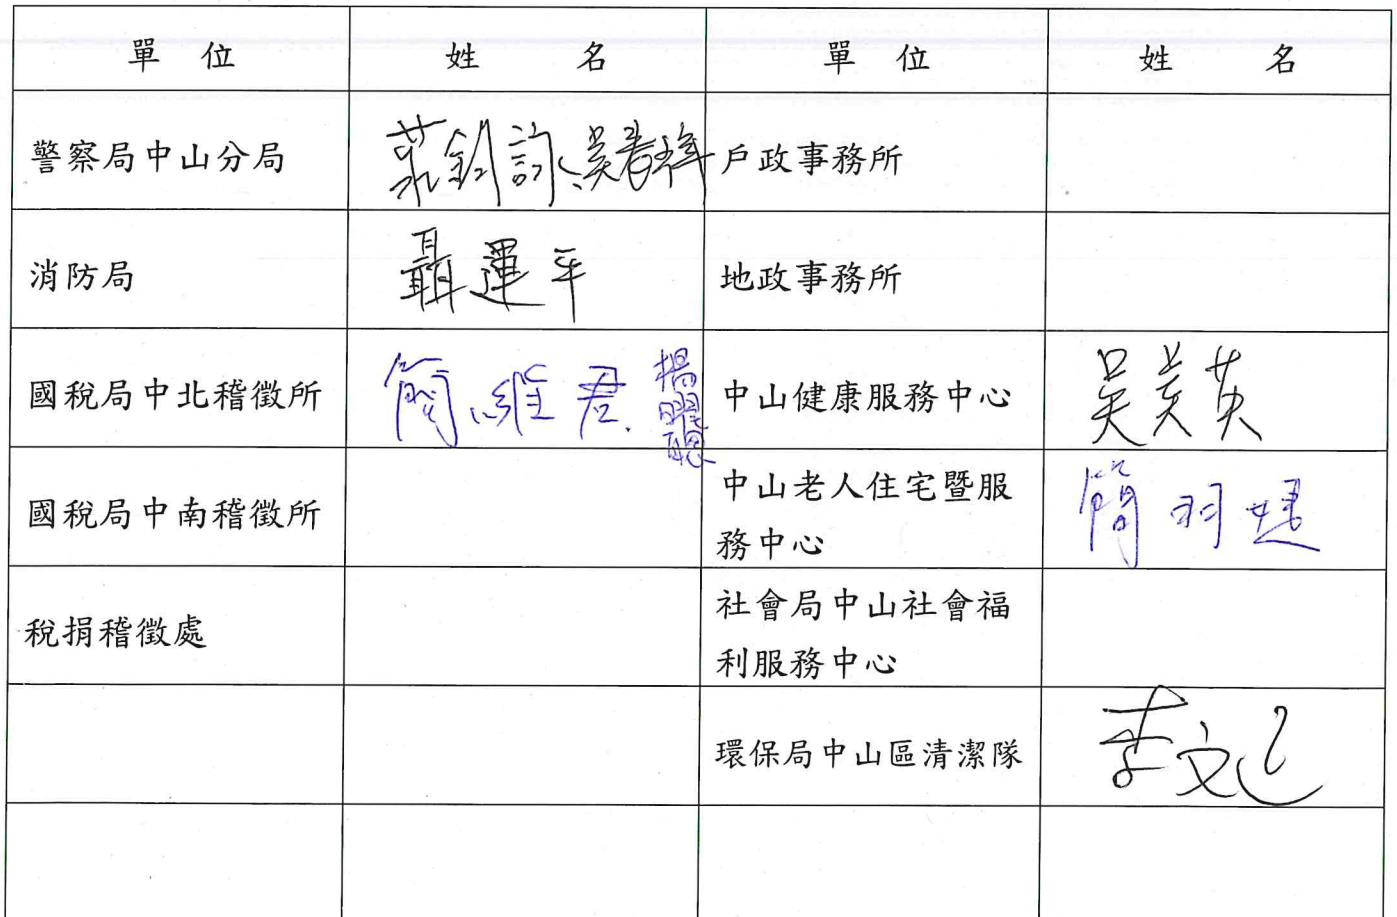 單位 姓名 單位 姓名
警察局中山分局 戶政事務所
消防局 聶運平 地政事務所
國稅局中北稽徵所 簡維君 楊曜聰 中山健康服務中心 吳美英
國稅局中南稽徵所 中山老人住宅暨服
務中心 簡羽
稅捐稽徵處 社會局中山社會福
利服務中心
環保局中山區清潔隊 李文